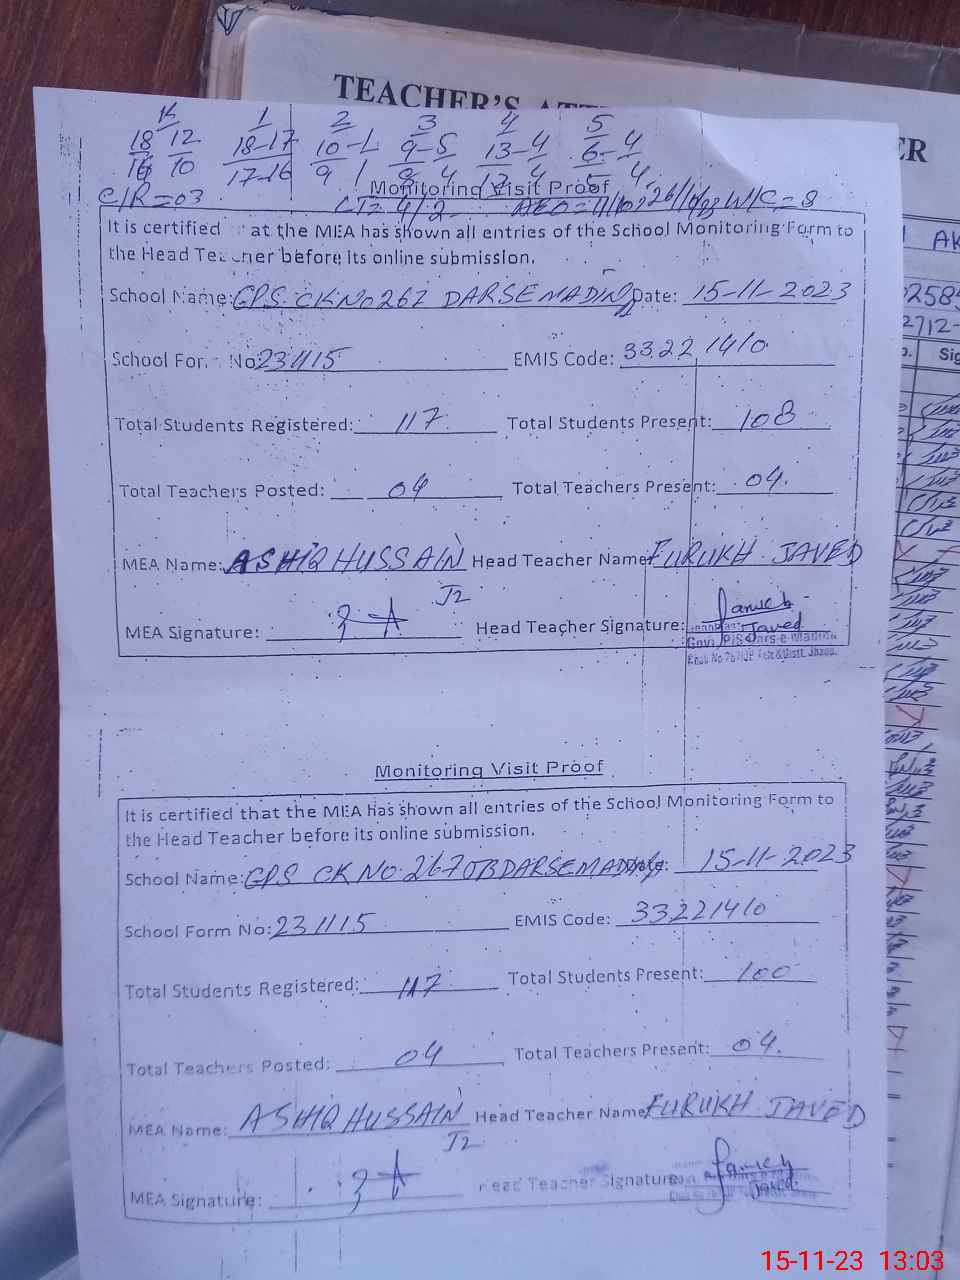 TEACHER'S
ER
K 1 2 3 4 5
18 12 18-17 10-1 9-5 13-4 6-4
16 10 17-16 9 1 8 4 12 4 5 4
C/R=03
Monitoring Visit Proof
W/C=8
It is certified at the MEA has shown all entries of the School Monitoring Form to
the Head Teacher before its online submission.
School Name: GPS. CK No 267 DARSE MADINA Date: 15-11-2023
School For. No 231115 EMIS Code: 33221410
Total Students Registered: 117 Total Students Present: 108
Total Teachers Posted: 04 Total Teachers Present: 04.
MEA Name: ASHIQ HUSSAIN Head Teacher Name: FURUKH JAVED
J2
MEA Signature: Head Teacher Signature:
Javed
Monitoring Visit Proof
It is certified that the MEA has shown all entries of the School Monitoring Form to
the Head Teacher before its online submission.
School Name: GPS CK NO. 267 JB DARSE MADINA 15-11-2023
School Form No: 231115 EMIS Code: 33221410
Total Students Registered: 117 Total Students Present: 100
Total Teachers Posted: 04 Total Teachers Present: 04.
MEA Name: ASHIQ HUSSAIN Head Teacher Name FURUKH JAVED
J2
MEA Signature: Head Teacher Signature
Javed
15-11-23 13:03